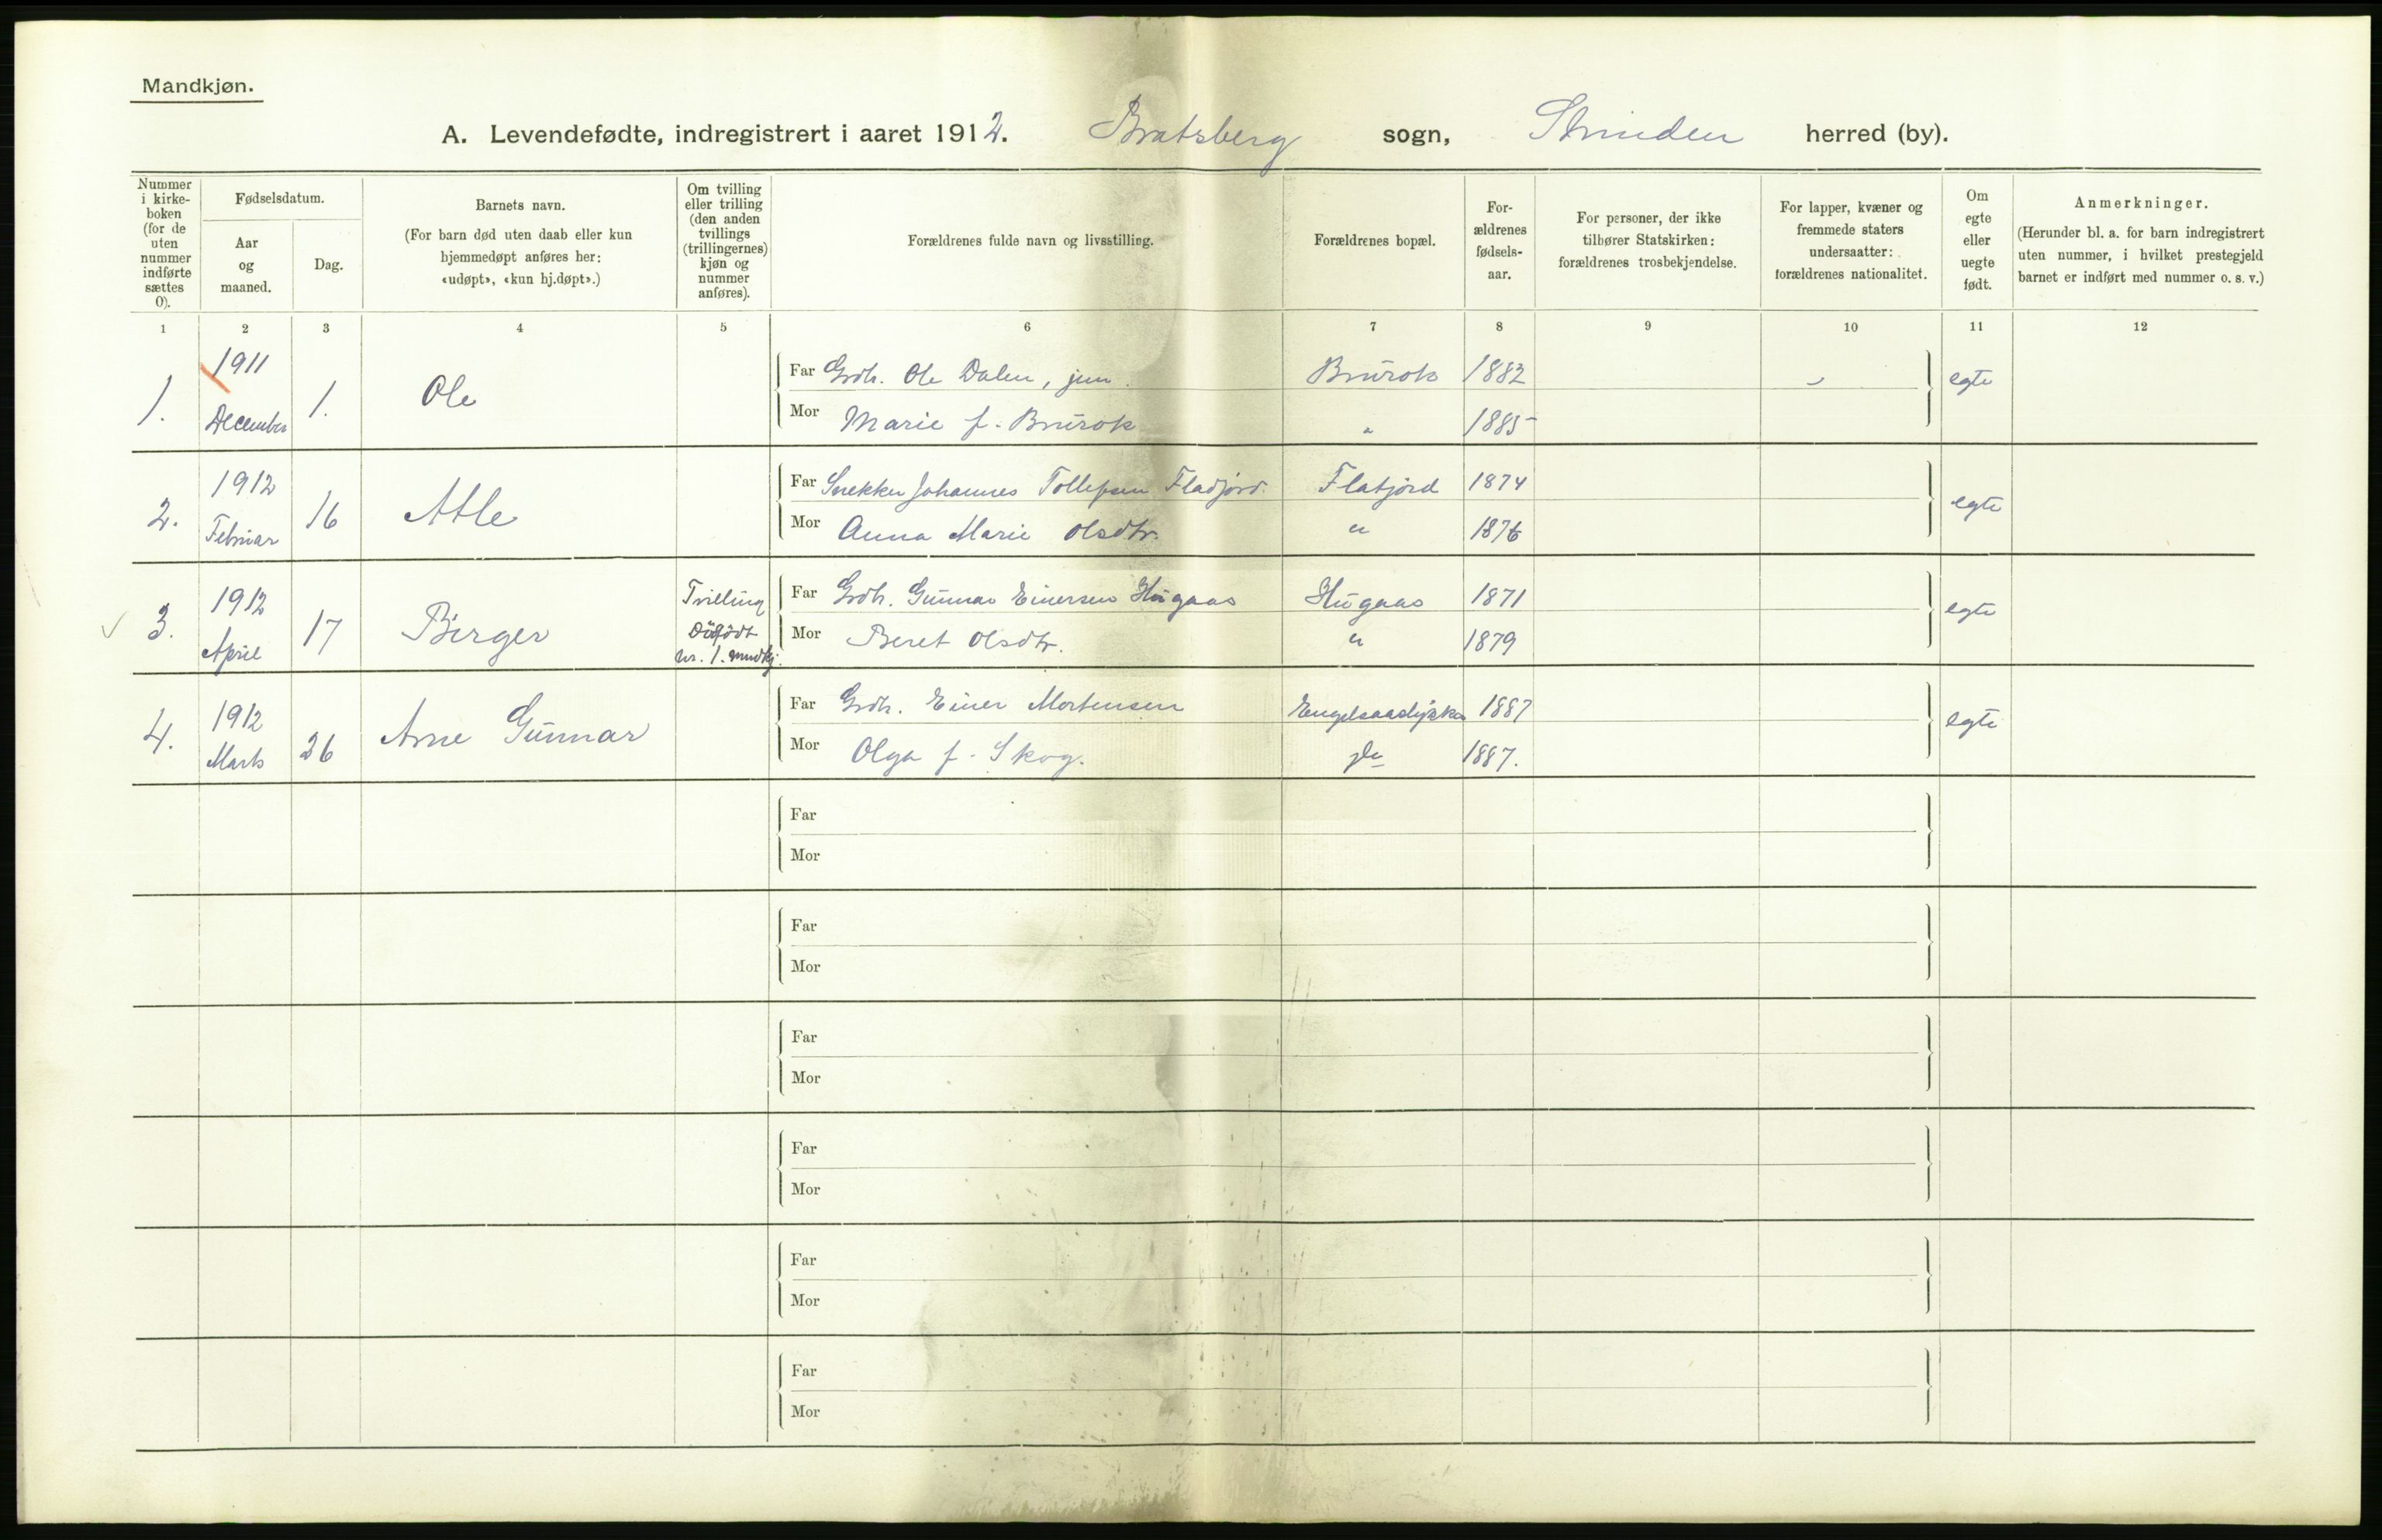 Mandkjøn.
A. Levendefødte, indregistrert i aaret 1912. Bratsberg sogn, Strinden herred (by).
Nummer i kirke-boken (for de uten nummer indførte sættes 0).
Fødselsdatum.
Aar og maaned.
Dag.
Barnets navn.
(For barn død uten daab eller kun hjemmedøpt anføres her: «udøpt», «kun hj.døpt».)
Om tvilling eller trilling (den anden tvillings (trillingernes) kjøn og nummer anføres).
Forældrenes fulde navn og livsstilling.
Forældrenes bopæl.
For-ældrenes fødsels-aar.
For personer, der ikke tilhører Statskirken: forældrenes trosbekjendelse.
For lapper, kvæner og fremmede staters undersaatter: forældrenes nationalitet.
Om egte eller uegte født.
Anmerkninger.
(Herunder bl. a. for barn indregistrert uten nummer, i hvilket prestegjeld barnet er indført med nummer o. s. v.)
1 2 3 4 5 6 7 8 9 10 11 12
1. 1911 December 1. Ole
Far Grdb. Ole Dalen, jun. Brurok 1882 egte
Mor Marie f. Brurok " 1885
2. 1912 Februar 16 Atle
Far Snekker Johannes Tollefsen Fladjord. Flatjord 1874 egte
Mor Anna Marie Olsdtr. " 1876
3. 1912 April 17 Birger Tvilling Dødfødt nr. 1. mndkj.
Far Grdb. Gunnar Einersen Hugaas Hugaas 1871 egte
Mor Beret Olsdtr. " 1879
4. 1912 Marts 26 Arne Gunnar
Far Grdb. Einer Mortensen 1887 egte
Mor Olga f. Skog. do 1887.
Far
Mor
Far
Mor
Far
Mor
Far
Mor
Far
Mor
Far
Mor